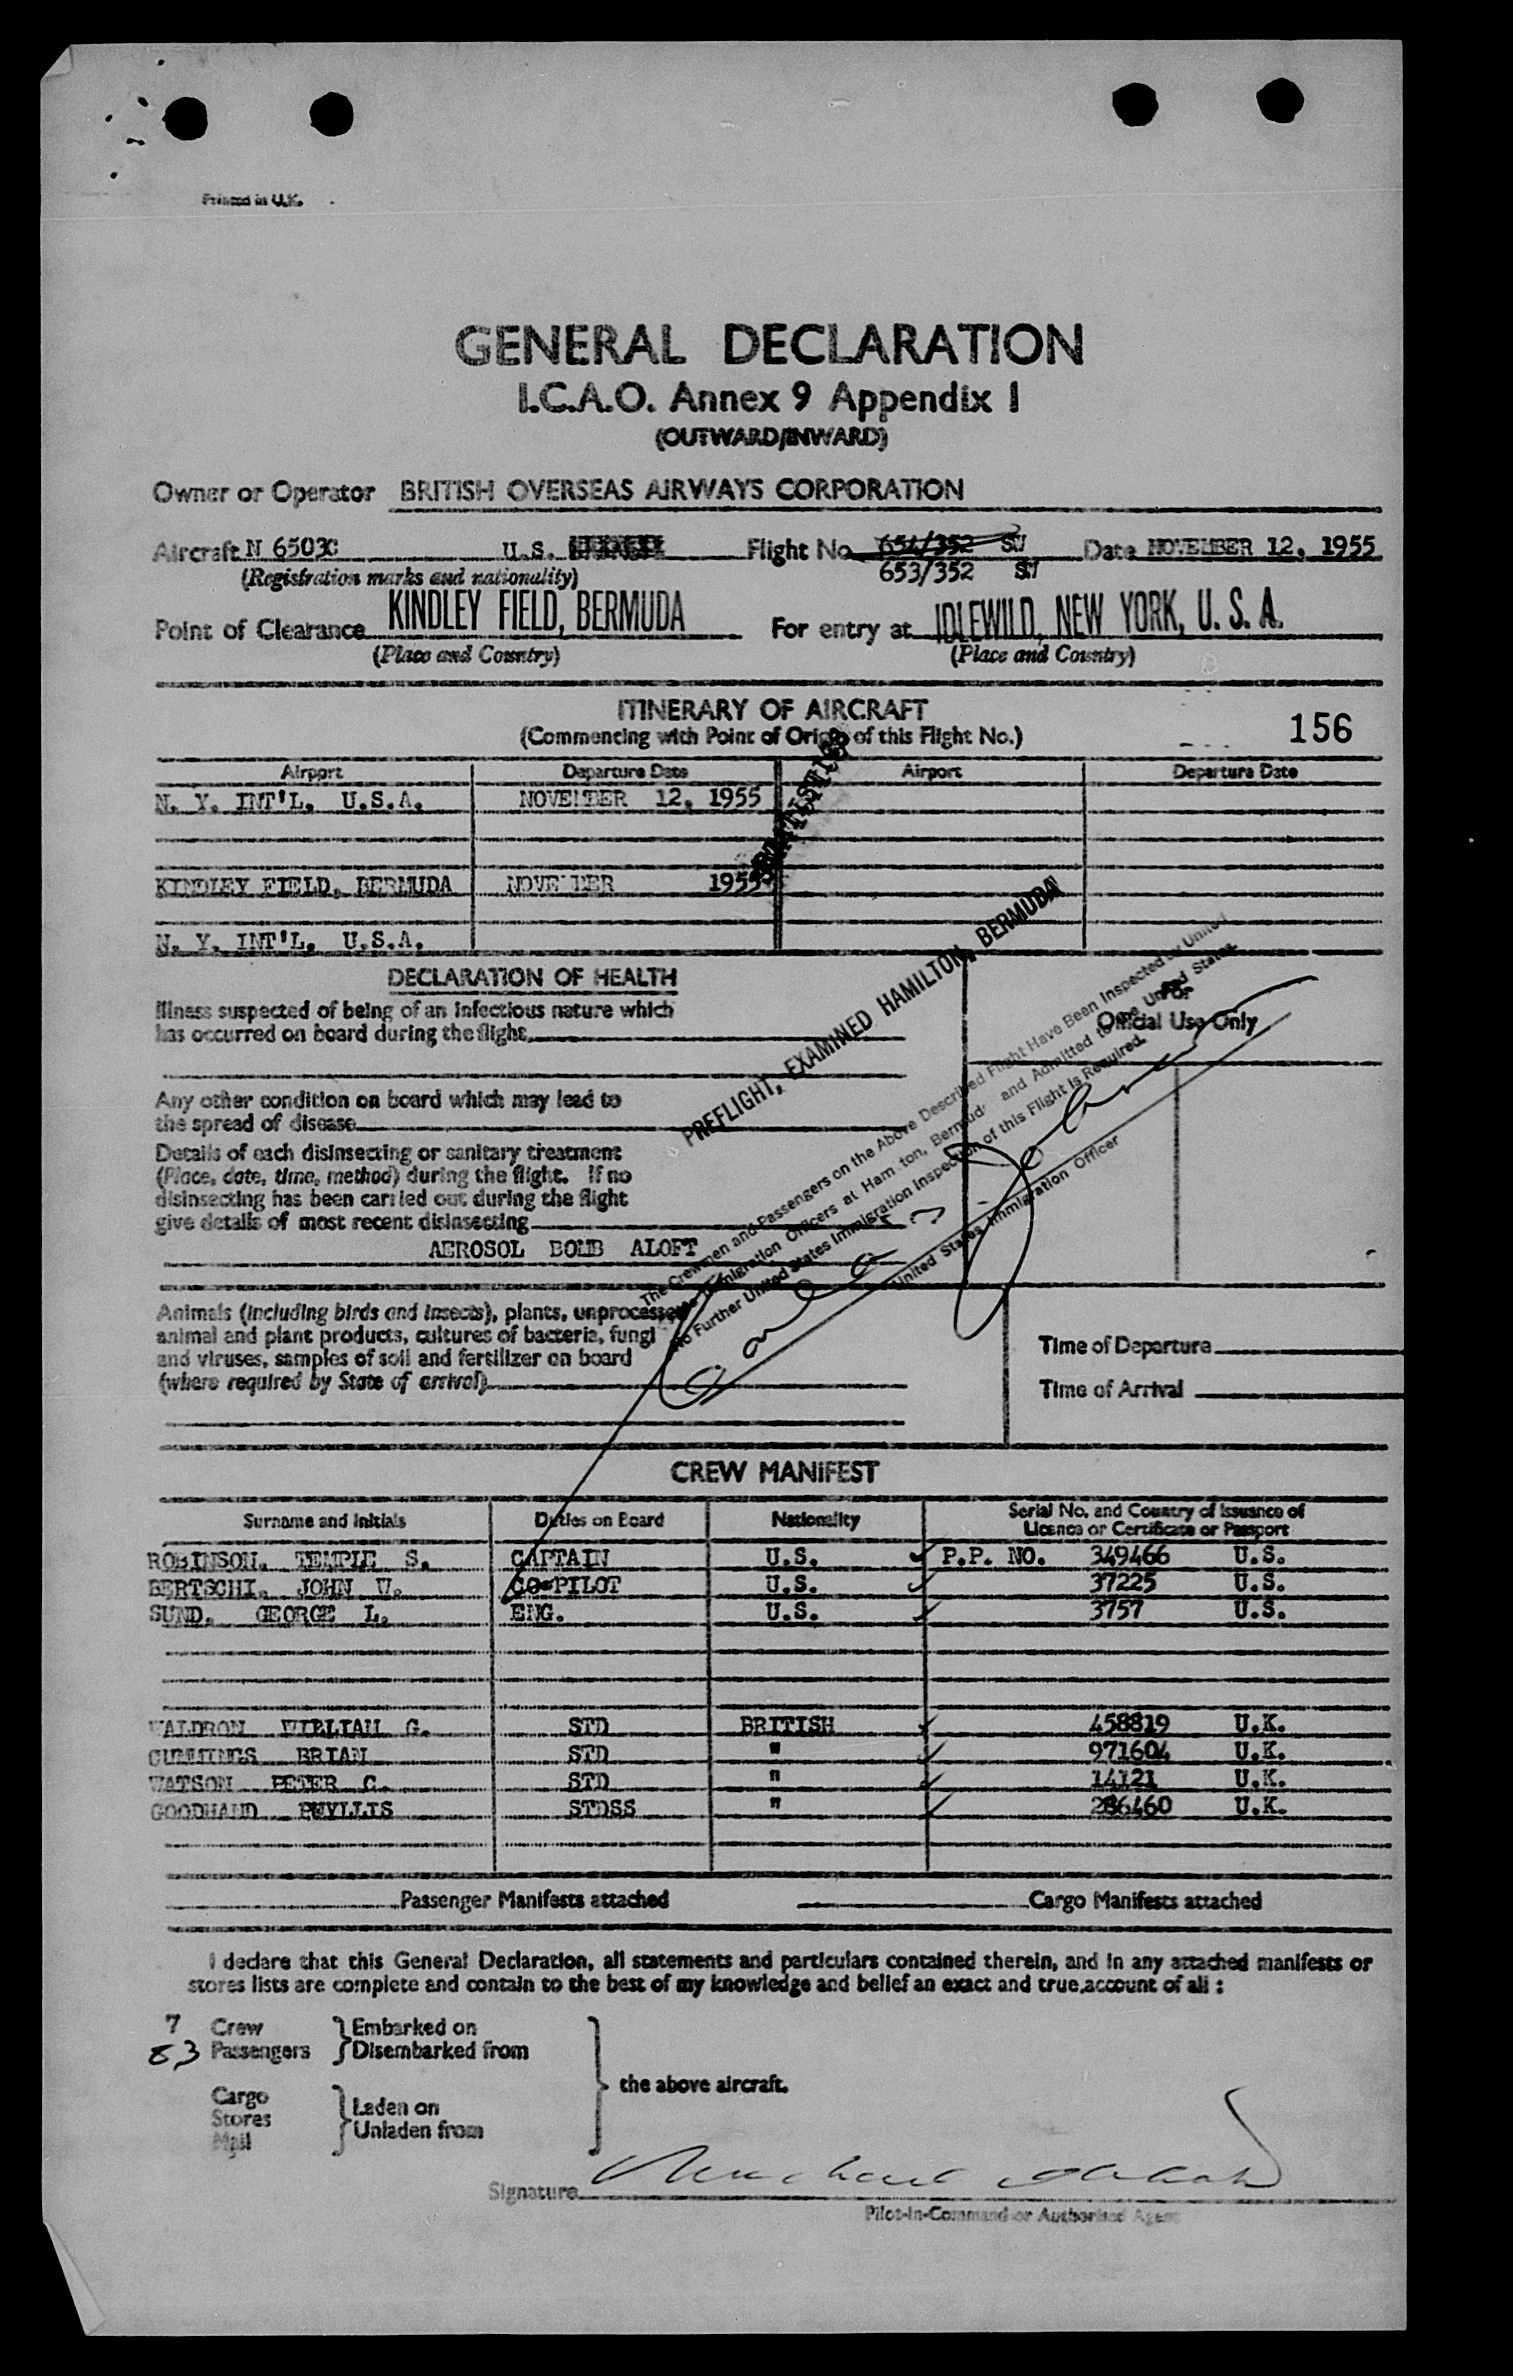 Printed in U.K.
GENERAL DECLARATION
I.C.A.O. Annex 9 Appendix 1
(OUTWARD/INWARD)
Owner or Operator BRITISH OVERSEAS AIRWAYS CORPORATION
Aircraft N 6503C U.S. Flight No. 654/352 SW Date NOVEMBER 12, 1955
(Registration marks and nationality) 653/352 SW
Point of Clearance KINDLEY FIELD, BERMUDA For entry at IDLEWILD, NEW YORK, U.S.A.
(Place and Country) (Place and Country)
ITINERARY OF AIRCRAFT
(Commencing with Point of Origin of this Flight No.) 156
Airport Departure Date Airport Departure Date
N. Y. INT'L. U.S.A. NOVEMBER 12, 1955
STATISTICS
KINDLEY FIELD, BERMUDA NOVEMBER 1955
N. Y. INT'L. U.S.A.
PREFLIGHT, EXAMINED HAMILTON, BERMUDA
The Crewmen and Passengers on the Above Described Flight Have Been Inspected by United
States Immigration Officers at Hamilton, Bermuda and Admitted to the United States.
No Further United States Immigration Inspection of this Flight is Required.
United States Immigration Officer
DECLARATION OF HEALTH
Illness suspected of being of an infectious nature which
has occurred on board during the flight
For
Official Use Only
Any other condition on board which may lead to
the spread of disease
Details of each disinsecting or sanitary treatment
(Place, date, time, method) during the flight. If no
disinsecting has been carried out during the flight
give details of most recent disinsecting
AEROSOL BOMB ALOFT
Animals (including birds and insects), plants, unprocessed
animal and plant products, cultures of bacteria, fungi
and viruses, samples of soil and fertilizer on board
(where required by State of arrival)
Time of Departure
Time of Arrival
CREW MANIFEST
Surname and Initials Duties on Board Nationality Serial No. and Country of Issuance of
Licence or Certificate or Passport
ROBINSON, TEMPLE S. CAPTAIN U.S. P.P. NO. 349466 U.S.
BERTSCHI, JOHN W. CO-PILOT U.S. 37225 U.S.
SUND, GEORGE L. ENG. U.S. 3757 U.S.
WALDRON WILLIAM G. STD BRITISH 458819 U.K.
CUMMINGS BRIAN STD " 971604 U.K.
WATSON PETER C. STD " 14121 U.K.
GOODHAND PHYLLIS STDSS " 286460 U.K.
Passenger Manifests attached Cargo Manifests attached
I declare that this General Declaration, all statements and particulars contained therein, and in any attached manifests or
stores lists are complete and contain to the best of my knowledge and belief an exact and true account of all :
7 Crew Embarked on
83 Passengers Disembarked from
the above aircraft.
Cargo Laden on
Stores Unladen from
Mail
Signature
Pilot-in-Command or Authorised Agent